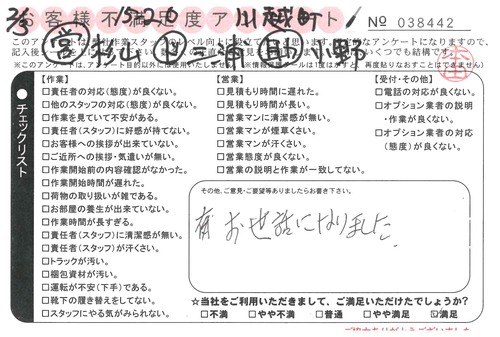 お客様不満足度アンケート
3/3 1526 川越町
営 杉山 三浦 助 小野
No 038442
このアンケートは弊社作業スタッフのレベル向上に役立て
※このアンケートは、アンケート目的以外には使用いたしません。
【作業】
□責任者の対応(態度)が良くない。
□他のスタッフの対応(態度)が良くない。
□作業を見ていて不安がある。
□責任者(スタッフ)に好感が持てない。
□お客様への挨拶が出来ていない。
□ご近所への挨拶・気遣いが無い。
□作業開始前の内容確認がなかった。
□作業開始時間が遅れた。
□荷物の取り扱いが雑である。
□お部屋の養生が出来ていない。
□作業時間が長すぎる。
□責任者(スタッフ)に清潔感が無い。
□責任者(スタッフ)が汗くさい。
□トラックが汚い。
□梱包資材が汚い。
□運転が不安(下手)である。
□靴下の履き替えをしてない。
□スタッフにやる気がみられない。
チェックリスト
【営業】
□見積もり時間に遅れた。
□見積もり時間が長い。
□営業マンに清潔感が無い。
□営業マンが煙草くさい。
□営業マンが汗くさい。
□営業態度が良くない。
□営業の説明と作業が一致してない。
【受付・その他】
□電話の対応が良くない。
□オプション業者の説明
・作業が良くない。
□オプション業者の対応
(態度)が良くない。
その他、ご意見・ご要望等ありましたらお書き下さい。
お世話になりました。
☆当社をご利用いただきまして、ご満足いただけたでしょうか?
□不満 □やや不満 □普通 □やや満足 ☑満足
ご協力ありがとうございました